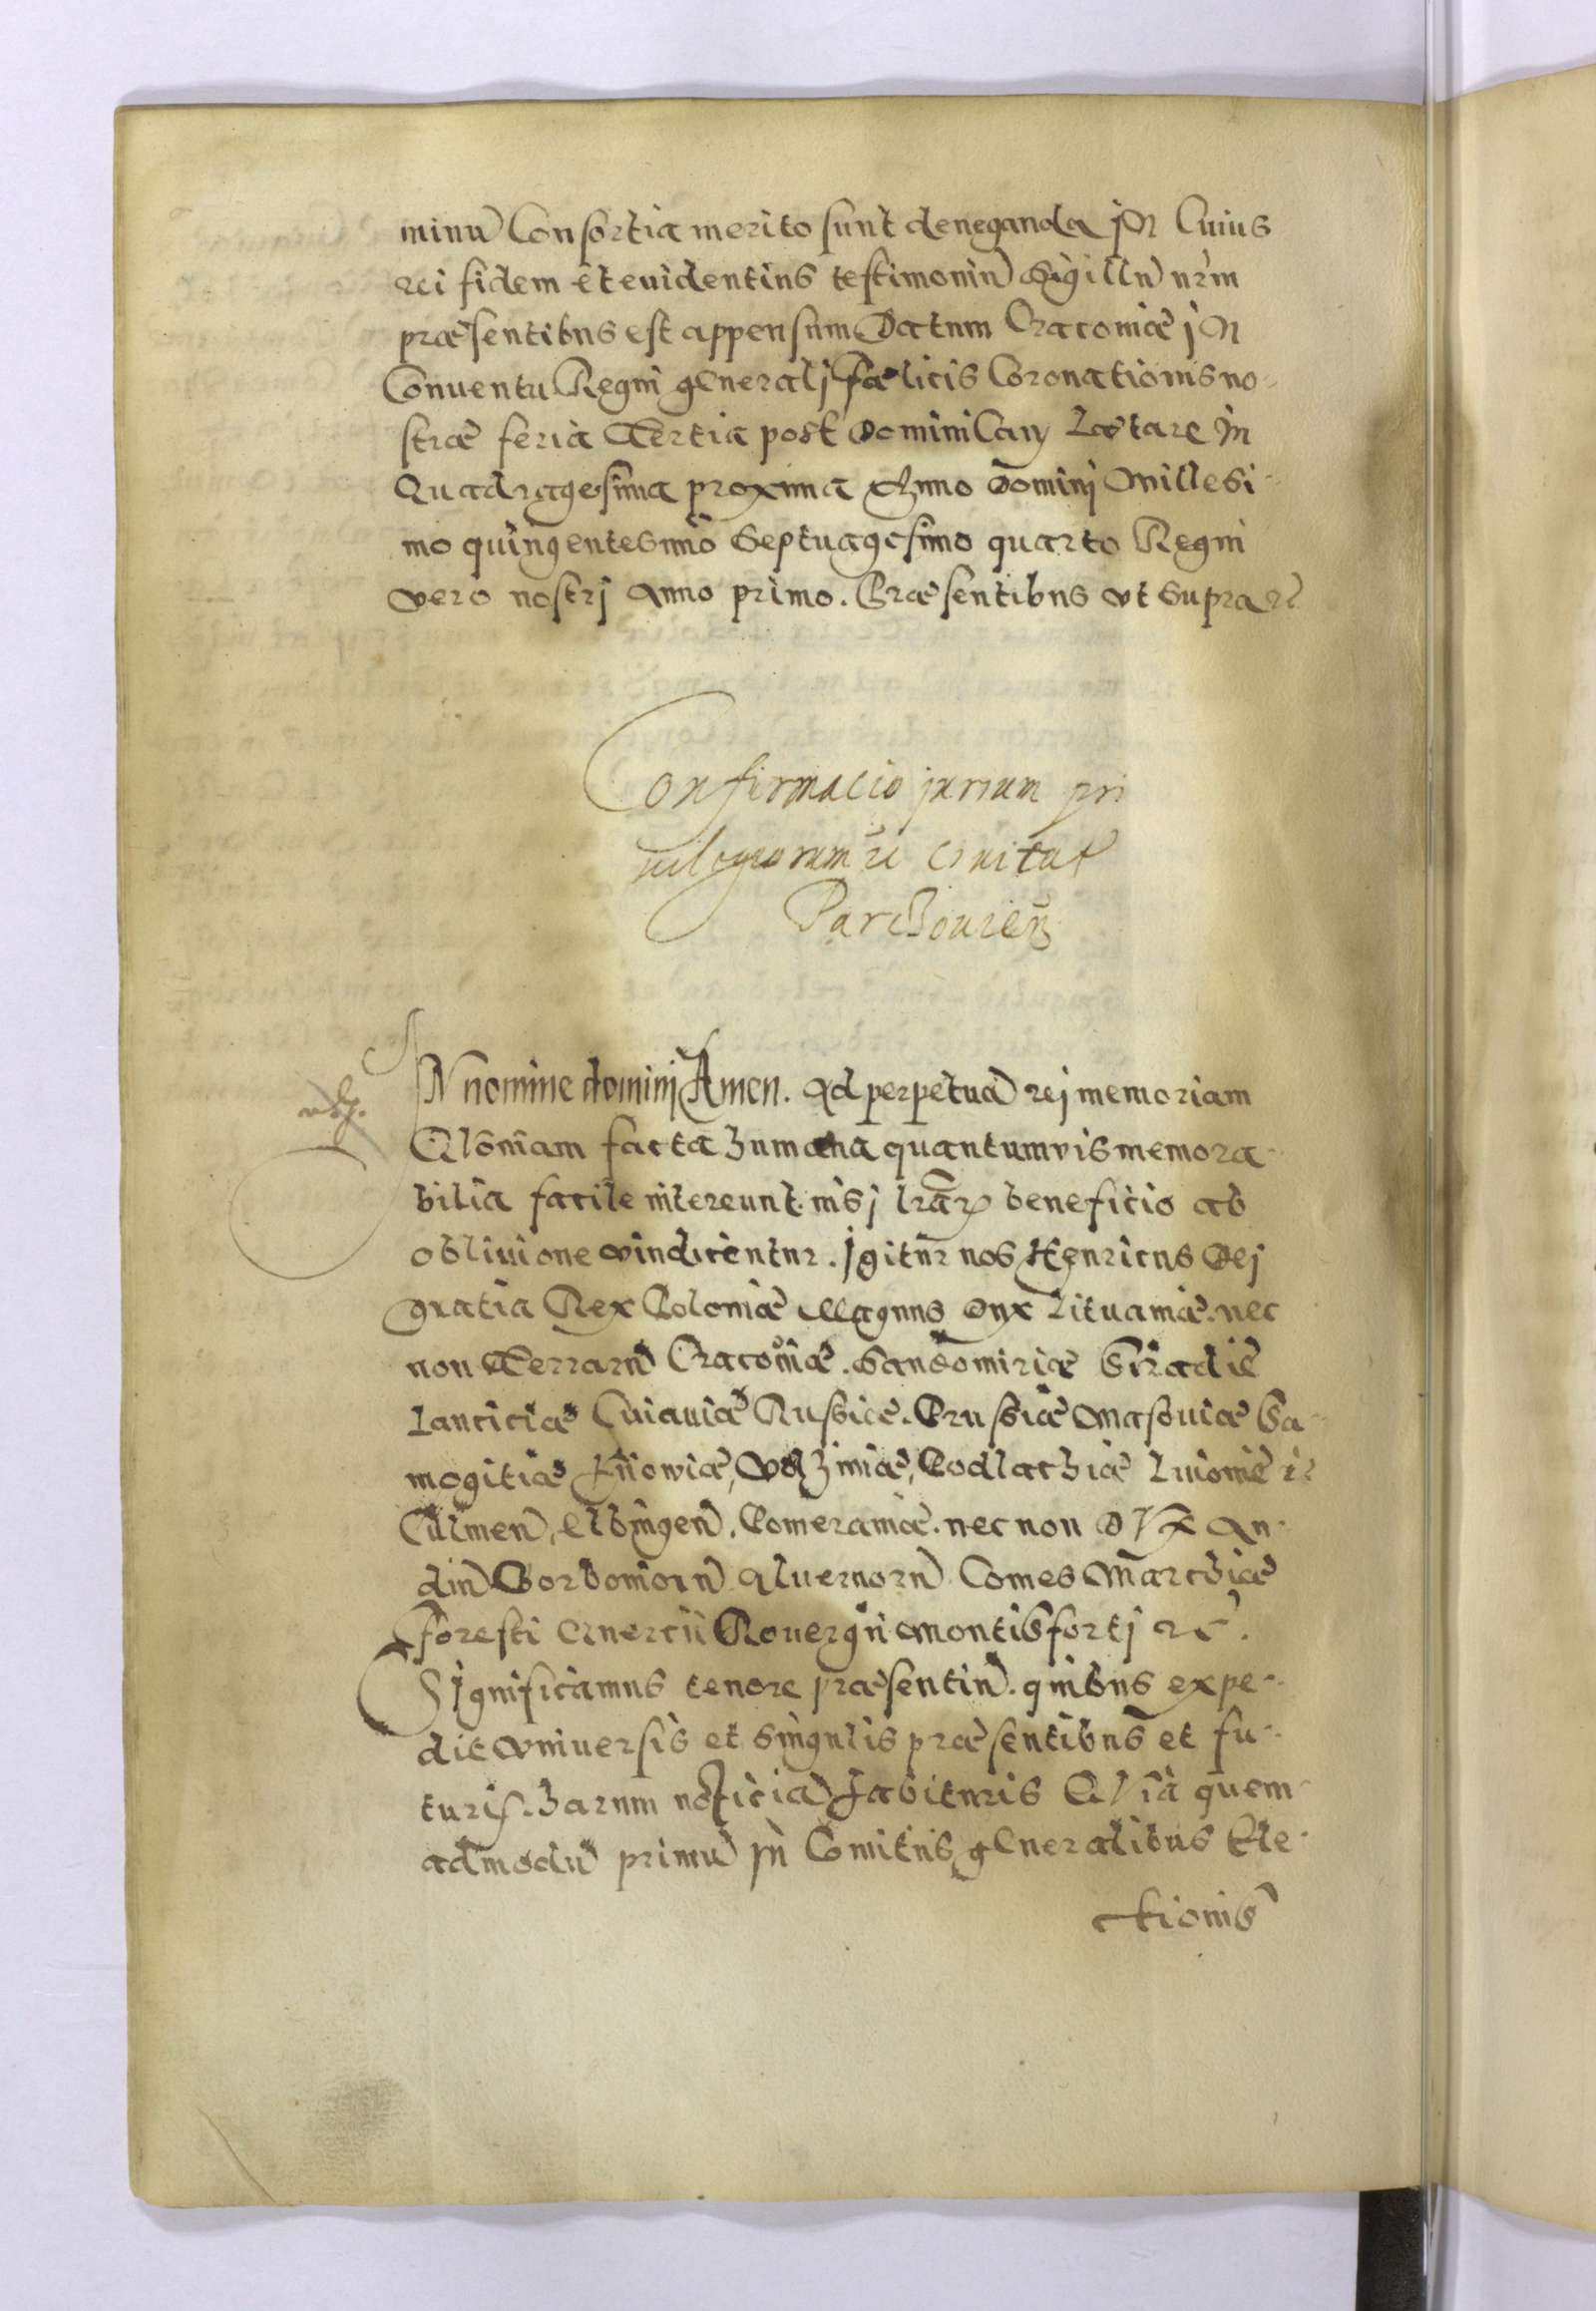 minu) Consortia merito sunt deneganda jN Cuius
rei fidem et euidentius testimoniu) Sigillu) nrm
præsentibus est appensum Datum Cracouiæ jN
Conuentu Regni generalj fælicis Coronationis no-
stræ feria Tertia post Dominicam Lætare in
Quadragesima proxima Anno Dominj Millesi-
mo quingentesimo Septuagesimo quarto Regni
vero nostrj Anno primo. Præsentibus vt supra etc
Confirmacio jurium pri
uilegiorum etc Ciuitat
Parchouien
IN nomine dominj Amen. Ad perpetua) rej memoriam
Quoniam facta humana quantumvis memora-
bilia facile intereunt nisj lrar beneficio ab
obliuione vindicentur. Igitur nos Henricus Dej
gratia Rex Poloniæ Magnus Dux Lituaniæ. nec
non Terraru) Cracouiæ. Sandomiriæ Siradiæ
Lanciciæ Cuiauiæ Russiæ. Prussiæ Masouiæ Sa-
mogitiæ Kiiowiæ, Volhiniæ, Podlachiæ Liuoniæ etc
Culmen, Elbingen, Pomeraniæ. nec non DVX An-
diu) Borbonioru) Aluernoru) Comes Marchiæ
Foresti Quercii Rouergii Montisfortj etc.
Significamus tenore præsentiu). quibus expe-
dit vniuersis et singulis præsentibus et fu-
turis. harum noticia) habituris QVia quem-
admodu) primu) in Comitiis generalibus Ele-
ctionis